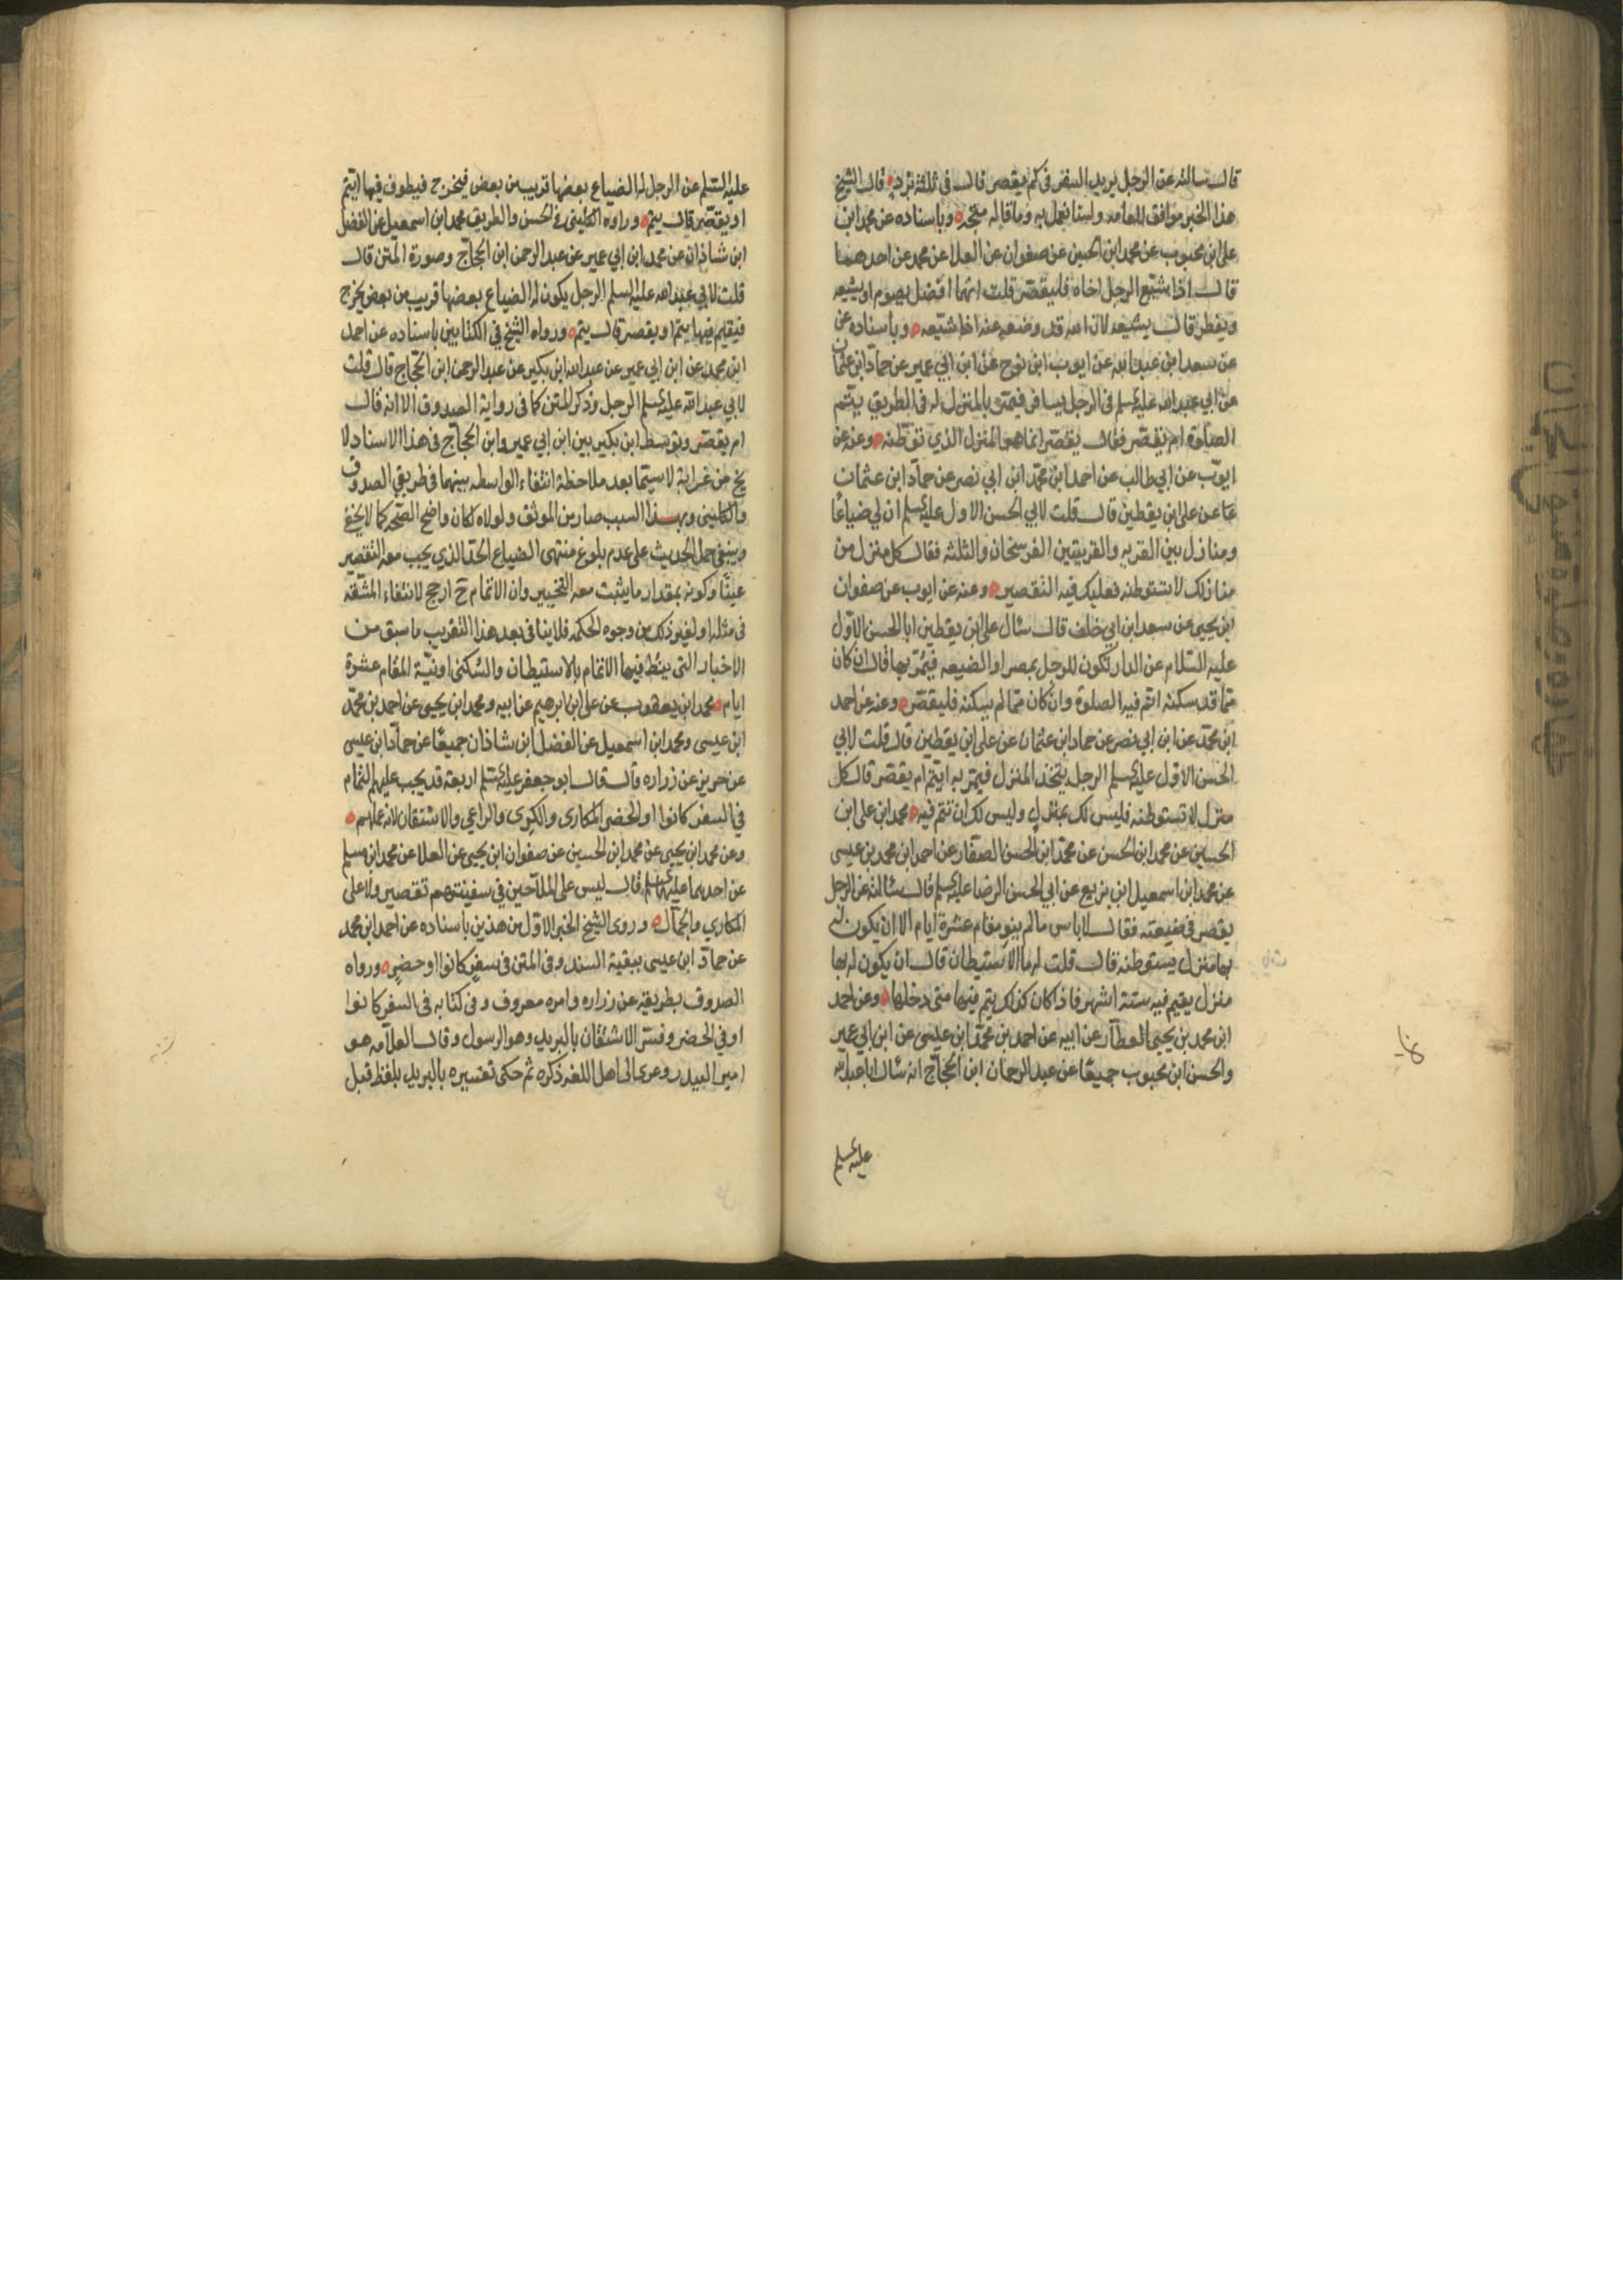 قال سالته عن الرجل يريد السفر في كم يقصر قال في ثلثة برد قال الشيخ
هذا الخبر موافق للعامه ولسنا نعمل به وما قاله متجه وباسناده عن محمد ابن
علي ابن محبوب عن محمد ابن الحسين عن صفوان عن العلا عن محمد عن احدهما
قال اذا شيع الرجل اخاه فليقصر قلت ايهما افضل يصوم او يشيعه
ويفطر قال يشيعه لان الله قد وضعه عنه اذا شيعه وباسناده عن
عن سعد ابن عبد الله عن ايوب ابن نوح عن ابن ابي عمير عن حماد ابن عثمان
عن ابي عبد الله عليه السلم في الرجل يسافر فيمر بالمنزل له في الطريق يتم
الصلوة ام يقصر فقال يقصر انما هو المنزل الذي توطنه وعنه عن
ايوب عن ابي طالب عن احمد ابن محمد ابن ابي نصر عن حماد ابن عثمان
عن علي ابن يقطين قال قلت لابي الحسن الاول عليه السلم ان لي ضياعا
ومنازل بين القريه والقريتين الفرسخان والثلثه فقال كل منزل من
منازلك لا تستوطنه فعليك فيه التقصير وعنه عن ايوب عن صفوان
ابن يحيى عن سعد ابن ابي خلف قال سئال علي ابن يقطين ابا الحسن الاول
عليه السلام عن الدار تكون للرجل بمصر او الضيعه فيمر بها قال ان كان
مما قد سكنه اتم فيه الصلوة وان كان مما لم يسكنه فليقصر وعنه عن احمد
ابن محمد عن ابن ابي نصر عن حماد ابن عثمان عن علي ابن يقطين قال قلت لابي
الحسن الاول عليه السلم الرجل يتخذ المنزل فيمر به ايتم ام يقصر قال كل
منزل لا تستوطنه فليس لك بمنزل وليس لك ان تتم فيه محمد ابن علي ابن
الحسين عن محمد ابن الحسن عن محمد ابن الحسن الصفار عن احمد ابن محمد بن عيسى
عن محمد ابن اسمعيل ابن بزيع عن ابي الحسن الرضا عليه السلم قال سئالته عن الرجل
يقصر في ضيعته فقال لا باس ما لم ينو مقام عشرة ايام الا ان يكون له
بها منزل يستوطنه قال قلت له ما الاستيطان قال ان يكون له بها
منزل يقيم فيه ستة اشهر فاذا كان كذلك يتم فيها متى دخلها وعن احمد
ابن محمد بن يحيى العطار عن ابيه عن احمد بن محمد ابن عيسى عن ابن ابي عمير
والحسن ابن محبوب جميعا عن عبد الرحمان ابن الحجاج انه سئال ابا عبد الله
عليه السلم
عليه السلم عن الرجل له الضياع بعضها قريب من بعض فيخرج فيطوف فيها ايتم
او يقصر قال يتم ورواه الكليني في الحسن والطريق محمد ابن اسمعيل عن الفضل
ابن شاذان عن محمد ابن ابي عمير عن عبد الرحمن ابن الحجاج وصورة المتن قال
قلت لابي عبد الله عليه السلم الرجل يكون له الضياع بعضها قريب من بعض يخرج
فيقيم فيها يتم او يقصر قال يتم ورواه الشيخ في الكتابين باسناده عن احمد
ابن محمد عن ابن ابي عمير عن عبد الله ابن بكير عن عبد الرحمن ابن الحجاج قال قلت
لابي عبد الله عليه السلم الرجل وذكر المتن كما في رواية الصدوق الا انه قال
ام يقصر وتوسط ابن بكير بين ابن ابي عمير وابن الحجاج في هذا الاسناد لا
يخ من غرابة لا سيما بعد ملاحظة انتفاء الواسطه بينهما في طريقي الصدوق
والكليني وبهذا السبب صار من الموثق ولولاه لكان واضح الصحه كما لا يخفى
وينبغي حمل الحديث على عدم بلوغ منتهى الضياع الحد الذي يجب معه التقصير
عينا وكونه بمقدار ما يثبت معه التخيير وان الاتمام ح ارجح لانتفاء المشقه
في مثله او لغير ذلك من وجوه الحكمه فلا ينافي بعد هذا التقريب ما سبق من
الاخبار التي ينط فيها الاتمام بالاستيطان والسكنى او نية المقام عشرة
ايام محمد ابن يعقوب عن علي ابن ابرهيم عن ابيه ومحمد ابن يحيى عن احمد بن محمد
ابن عيسى ومحمد ابن اسمعيل عن الفضل ابن شاذان جميعا عن حماد ابن عيسى
عن حريز عن زراره قال قال ابو جعفر عليه السلم اربعة قد يجب عليهم التمام
في السفر كانوا او الحضر المكاري والكري والراعي والاشتقان لانه عملهم
وعن محمد ابن يحيى عن محمد ابن الحسين عن صفوان ابن يحيى عن العلا عن محمد ابن مسلم
عن احدهما عليهما السلم قال ليس على الملاحين في سفينتهم تقصير ولا على
المكاري والجمال وروى الشيخ الخبر الاول من هذين باسناده عن احمد ابن محمد
عن حماد ابن عيسى ببقية السند وفي المتن في سفر كانوا او حضر ورواه
الصدوق بطريقه عن زراره وامره معروف وفي كتابه في السفر كانوا
او في الحضر وفسر الاشتقان بالبريد وهو الرسول وقال العلامه هو
امين البيدر وعزى الى اهل اللغه ذكره ثم حكى تفسيره بالبريد بلفظ قيل